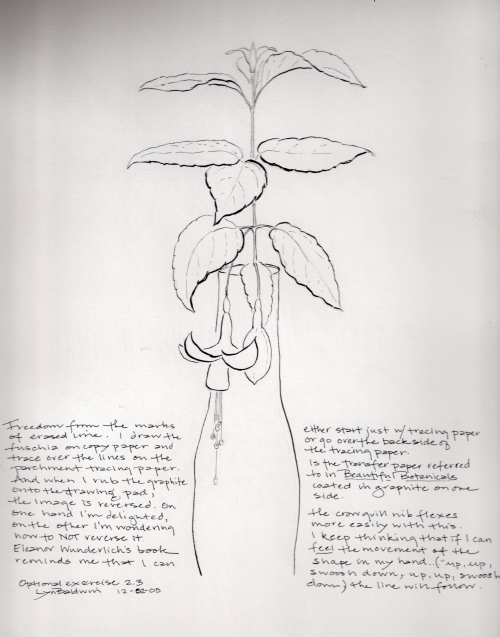 Freedom from the marks
of erased line. I draw the
fuschia on copy paper and
trace over the lines on the
parchment tracing paper.
And when I rub the graphite
onto the drawing pad,
the image is reversed. On
one hand I'm delighted,
on the other I'm wondering
how to NOT reverse it.
Eleanor Wunderlich's book
reminds me that I can
Optional exercise 2.3
Lyn Baldwin 12-02-05
either start just w/ tracing paper
or go over the backside of
the tracing paper.
Is the transfer paper referred
to in Beautiful Botanicals
coated in graphite on one
side.
the crowquill nib flexes
more easily with this.
I keep thinking that if I can
feel the movement of the
shape in my hand...("up, up,
swoosh down, up, up, swoosh
down) the line will follow.